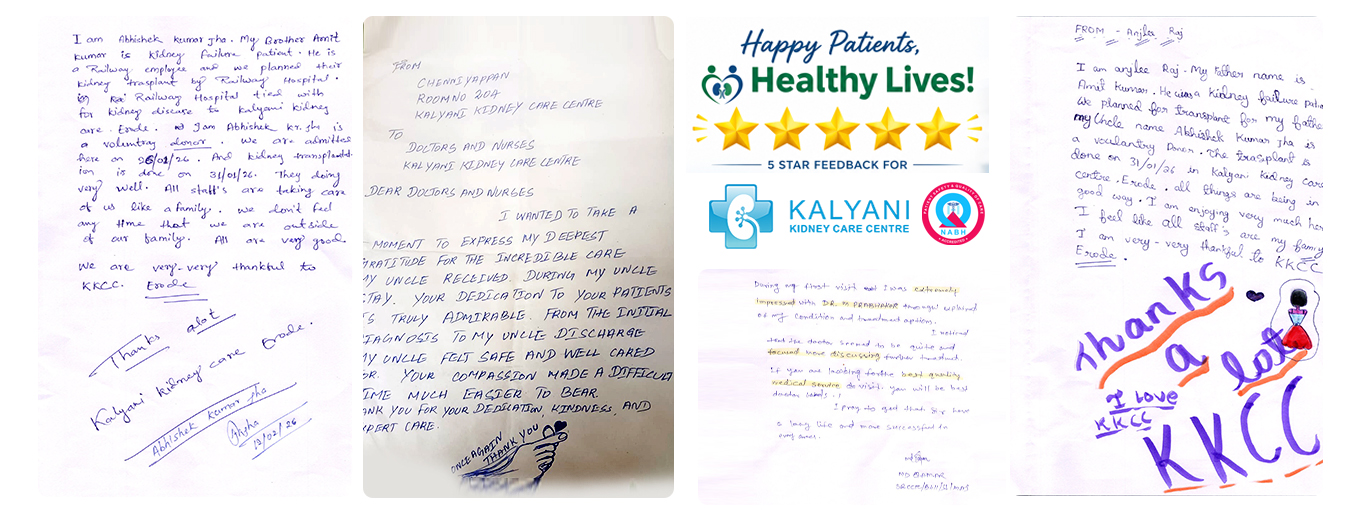 I am Abhishek Kumar Jha. My Brother Amit
Kumar is kidney failure patient. He is
a Railway employee and we planned their
kidney trasplant by Railway Hospital.
Railway Hospital tied with
for kidney disease to kalyani kidney
care. Erode. I am Abhishek Kr. Jha is
a voluntry donor. We are admitted
here on 26/01/26. And kidney transplantat
ion is done on 31/01/26. They doing
very well. All staff's are taking care
of us like a family. We don't feel
any time that we are outside
of our family. All are very good.
We are very-very thankful to
KKCC. Erode
Thanks alot
Kalyani kidney care Erode.
Abhishek Kumar Jha
12/02/26
FROM
CHENNIYAPPAN
ROOM NO 204
KALYANI KIDNEY CARE CENTRE
TO
DOCTORS AND NURSES
KALYANI KIDNEY CARE CENTRE
DEAR DOCTORS AND NURSES
I WANTED TO TAKE A
MOMENT TO EXPRESS MY DEEPEST
GRATITUDE FOR THE INCREDIBLE CARE
MY UNCLE RECEIVED DURING MY UNCLE
STAY. YOUR DEDICATION TO YOUR PATIENTS
IS TRULY ADMIRABLE. FROM THE INITIAL
DIAGNOSIS TO MY UNCLE DISCHARGE
MY UNCLE FELT SAFE AND WELL CARED
FOR. YOUR COMPASSION MADE A DIFFICULT
TIME MUCH EASIER TO BEAR.
THANK YOU FOR YOUR DEDICATION, KINDNESS, AND
EXPERT CARE.
ONCE AGAIN
THANK YOU
Happy Patients,
Healthy Lives!
5 STAR FEEDBACK FOR
KALYANI
KIDNEY CARE CENTRE
PATIENT SAFETY & QUALITY OF CARE
NABH
ACCREDITED
During my first visit I was extremely
impressed with DR. M PRABHAKAR explained
of my condition and treatment options.
I noticed
that the doctor seemed to be quite and
focused more discussing further treatment.
if you are looking for the best quality
medical service do visit. you will be best
doctor
I pray to god that have
a long life and more successful in
SRCCR/
FROM - Anjlee Raj
I am anjlee Raj. My father name is
Amit Kumar. He was a kidney failure patie
We planned for transplant for my fathe
my Uncle name Abhishek Kumar Jha is
a vocluantry Donor. The trasplant is
done on 31/01/26 in Kalyani kidney care
centre. Erode. all things are being in
good way. I am enjoying very much her
I feel like all staff's are my family
I am very-very thankful to KKCC
Erode.
Thanks
a
lot
I Love
KKCC
KKCC